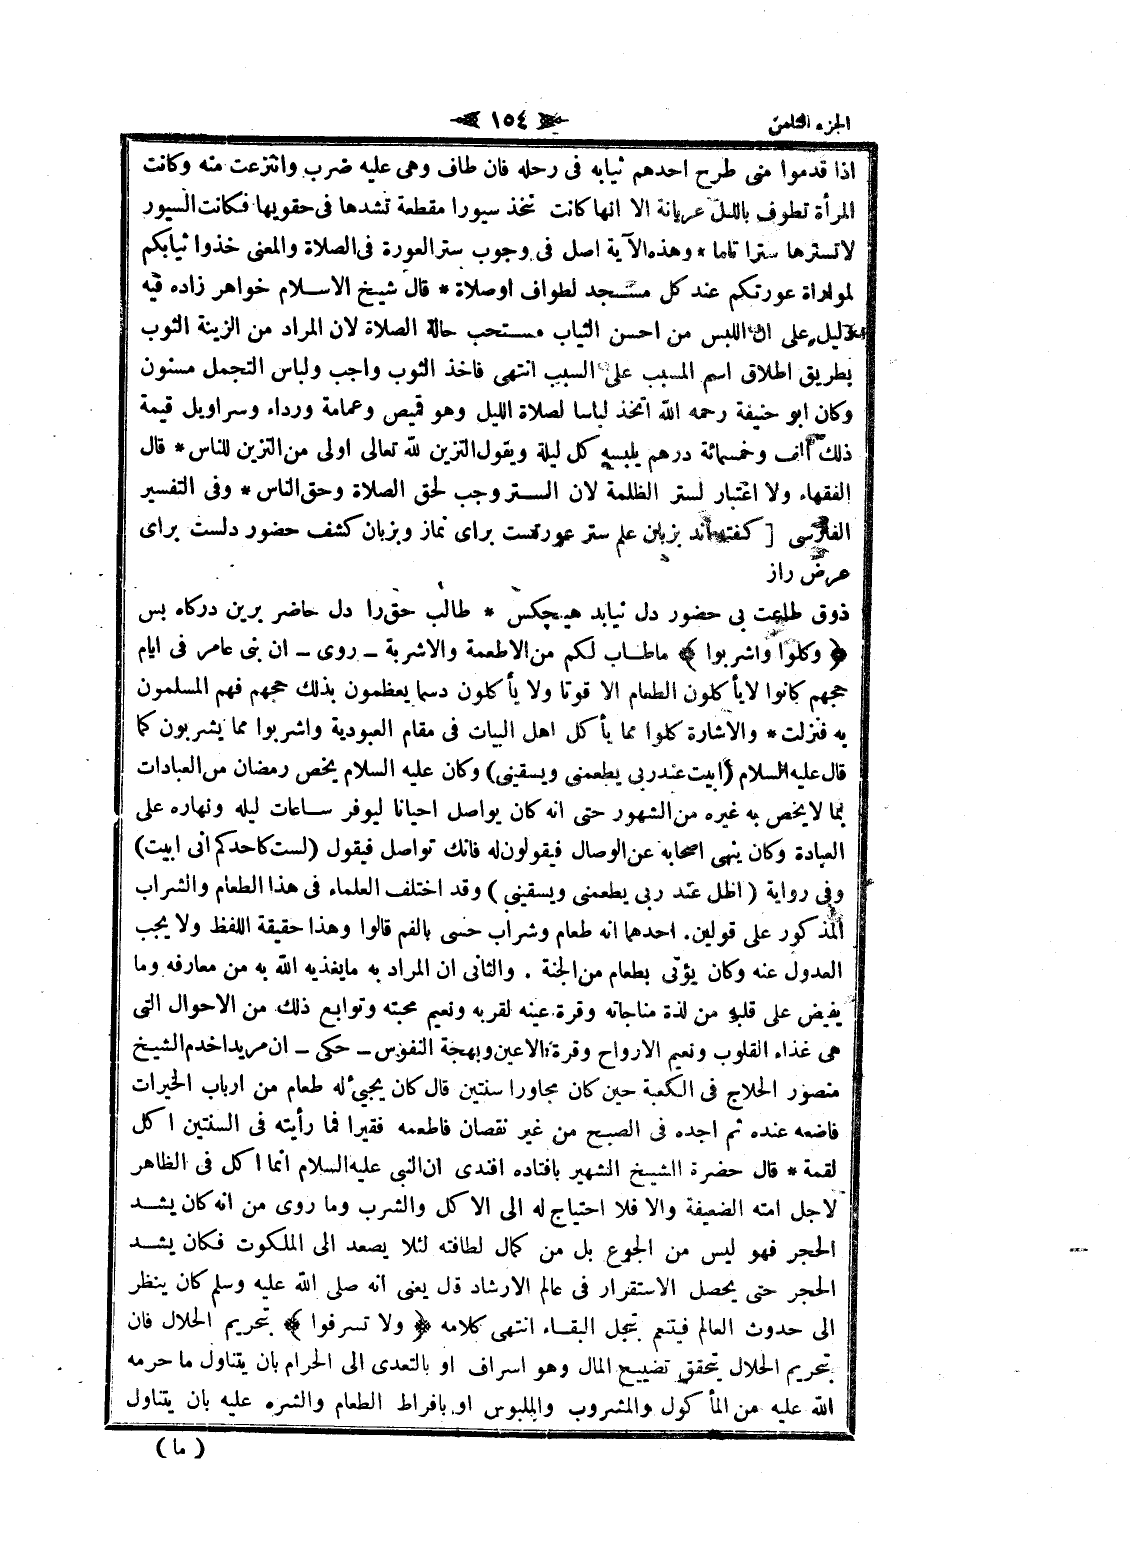 الجزء الثامن
١٥٤
اذا قدموا منى طرح احدهم ثيابه فى رحله فان طاف وهى عليه ضرب وانتزعت منه وكانت
المرأة تطوف بالليل عريانة الا انها كانت تتخذ سيورا مقطعة تشدها فى حقويها فكانت السيور
لاتسترها سترا تاما * وهذه الآية اصل فى وجوب ستر العورة فى الصلاة والمعنى خذوا ثيابكم
لمواراة عورتكم عند كل مسجد لطواف او صلاة * قال شيخ الاسلام خواهر زاده فيه
دليل على ان اللبس من احسن الثياب مستحب حالة الصلاة لان المراد من الزينة الثوب
بطريق اطلاق اسم المسبب على السبب انتهى فاخذ الثوب واجب ولباس التجمل مسنون
وكان ابو حنيفة رحمه الله اتخذ لباسا لصلاة الليل وهو قميص وعمامة ورداء وسراويل قيمة
ذلك الف وخمسمائة درهم يلبسه كل ليلة ويقول التزين لله تعالى اولى من التزين للناس * قال
الفقهاء ولا اعتبار لستر الظلمة لان الستر وجب لحق الصلاة وحق الناس * وفى التفسير
الفارسى [ كفته اند بزبان علم ستر عورتست براى نماز وبزبان كشف حضور دلست براى
عرض راز
ذوق طاعت بى حضور دل نيابد هيچكس * طالب حق را دل حاضر برين دركاه بس
﴿ وكلوا واشربوا ﴾ ماطاب لكم من الاطعمة والاشربة ـ روى ـ ان بنى عامر فى ايام
حجهم كانوا لايأكلون الطعام الا قوتا ولا يأكلون دسما يعظمون بذلك حجهم فهم المسلمون
به فنزلت * والاشارة كلوا مما يأكل اهل البيات فى مقام العبودية واشربوا مما يشربون كما
قال عليه السلام (ابيت عند ربى يطعمنى ويسقينى) وكان عليه السلام يخص رمضان من العبادات
بما لايخص به غيره من الشهور حتى انه كان يواصل احيانا ليوفر ساعات ليله ونهاره على
العبادة وكان ينهى اصحابه عن الوصال فيقولون له فانك تواصل فيقول (لست كاحدكم انى ابيت)
وفى رواية ( اظل عند ربى يطعمنى ويسقينى ) وقد اختلف العلماء فى هذا الطعام والشراب
المذكور على قولين . احدهما انه طعام وشراب حسى بالفم قالوا وهذا حقيقة اللفظ ولا يجب
العدول عنه وكان يؤتى بطعام من الجنة . والثانى ان المراد به مايغذيه الله به من معارفه وما
يفيض على قلبه من لذة مناجاته وقرة عينه لقربه ونعيم محبته وتوابع ذلك من الاحوال التى
هى غذاء القلوب ونعيم الارواح وقرة الاعين وبهجة النفوس ـ حكى ـ ان مريدا خدم الشيخ
منصور الحلاج فى الكعبة حين كان مجاورا سنتين قال كان يجيئ له طعام من ارباب الخيرات
فاضعه عنده ثم اجده فى الصبح من غير نقصان فاطعمه فقيرا فما رأيته فى السنتين اكل
لقمة * قال حضرة الشيخ الشهير بافتاده افندى ان النبى عليه السلام انما اكل فى الظاهر
لاجل امته الضعيفة والا فلا احتياج له الى الاكل والشرب وما روى من انه كان يشد
الحجر فهو ليس من الجوع بل من كمال لطافته لئلا يصعد الى الملكوت فكان يشد
الحجر حتى يحصل الاستقرار فى عالم الارشاد قال يعنى انه صلى الله عليه وسلم كان ينظر
الى حدوث العالم فيتنعم بتجلى البقاء انتهى كلامه ﴿ ولا تسرفوا ﴾ بتحريم الحلال فان
بتحريم الحلال يتحقق تضييع المال وهو اسراف او بالتعدى الى الحرام بان يتناول ما حرمه
الله عليه من المأكول والمشروب والملبوس او بافراط الطعام والشره عليه بان يتناول
( ما )